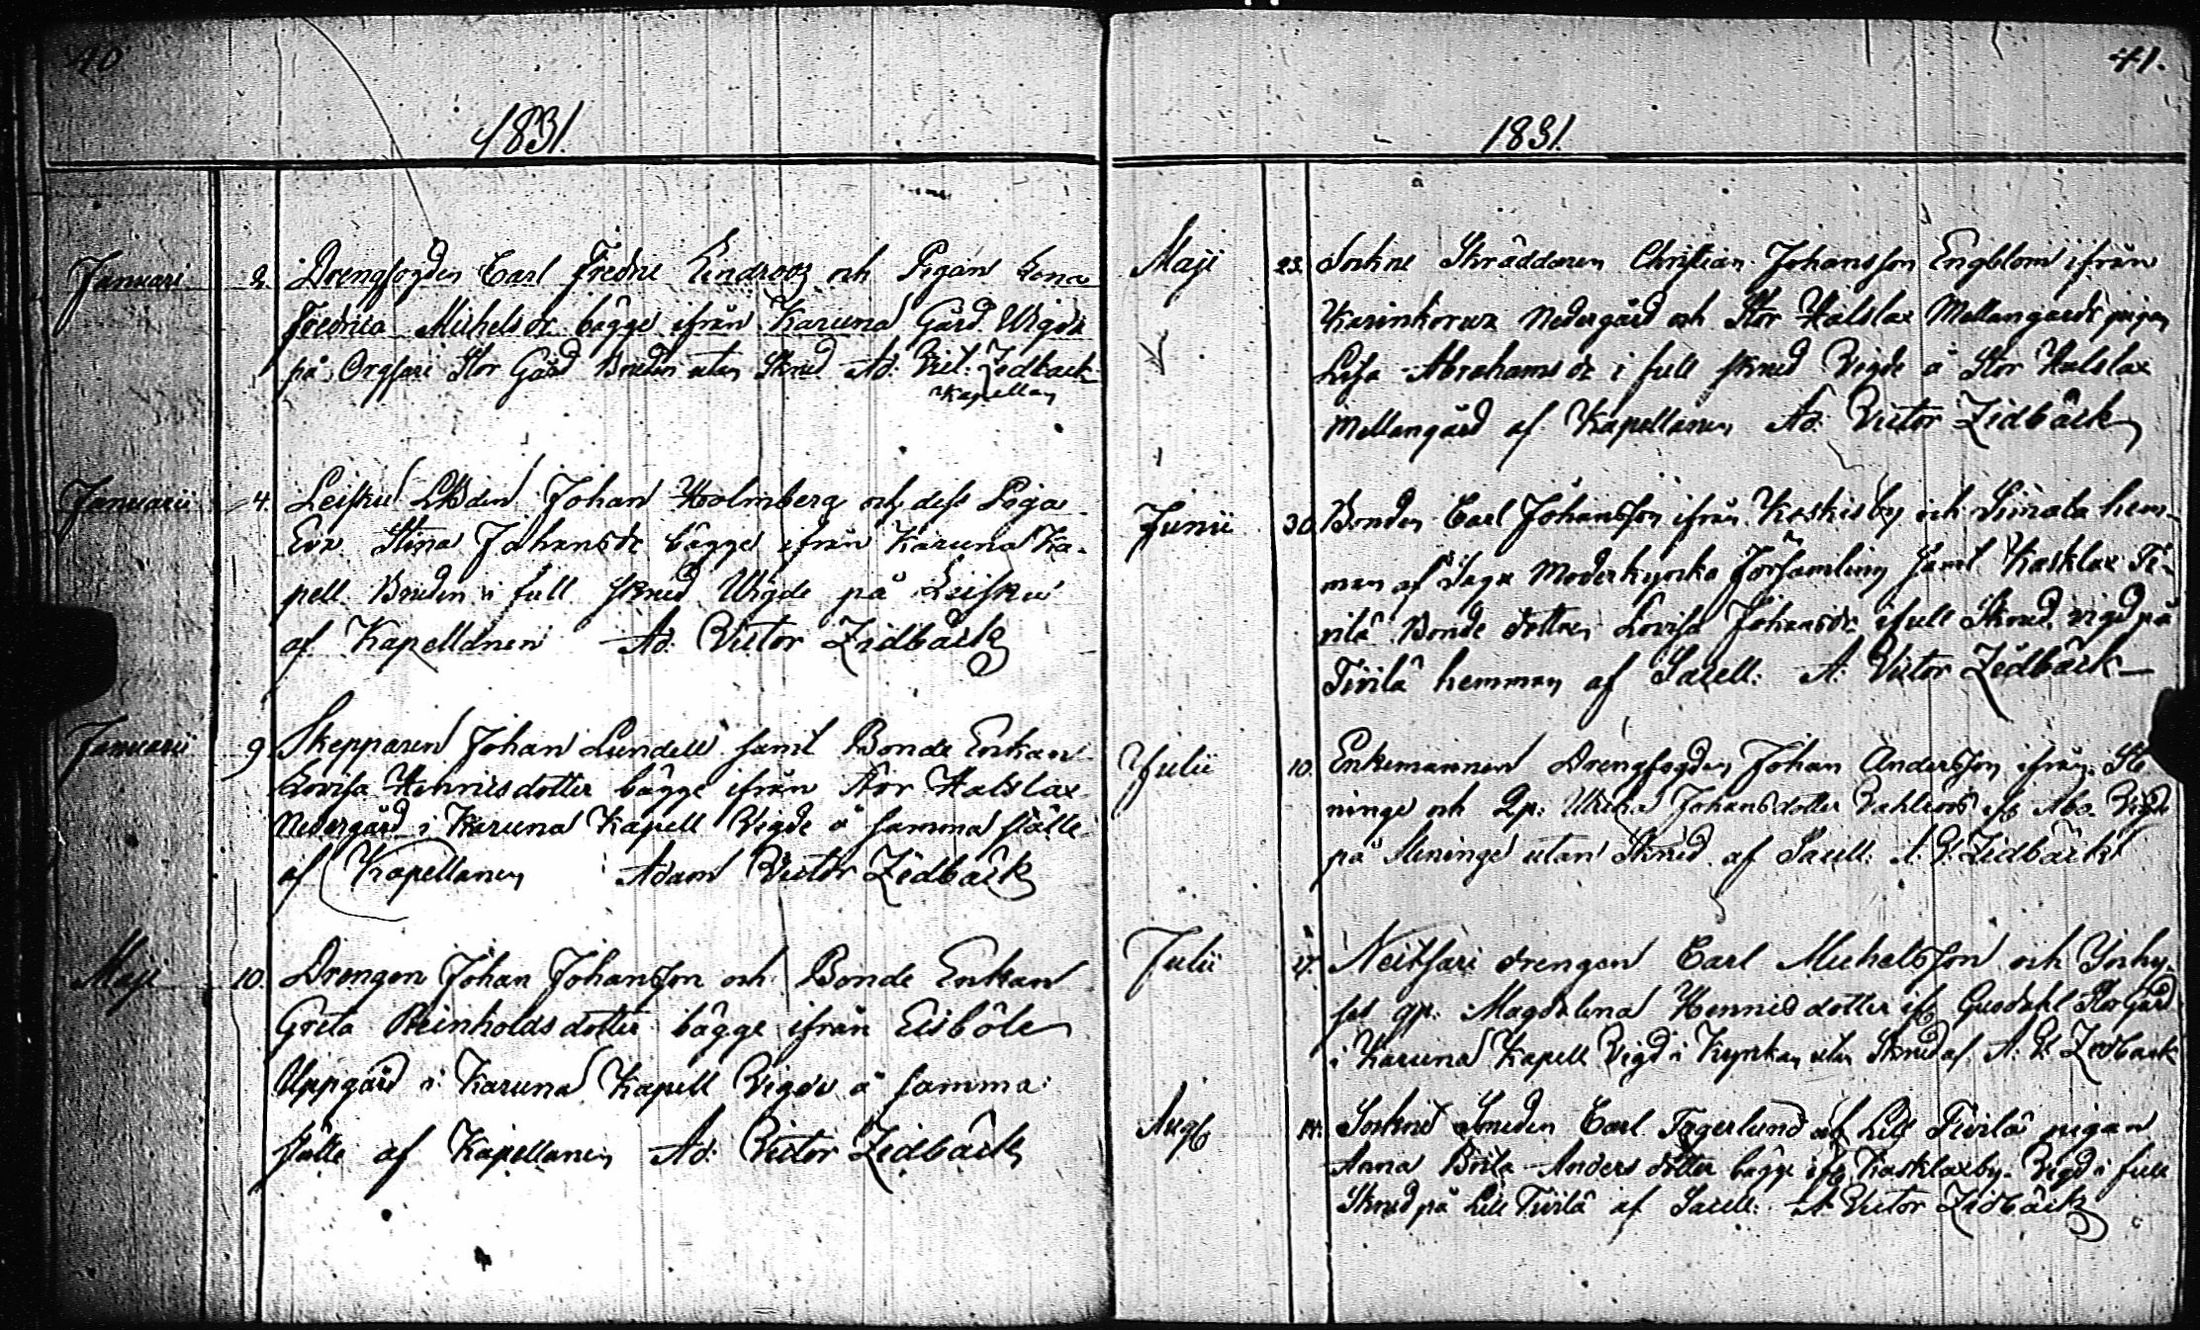 40
1831.
Januari 2. Drengfogden Carl Fredric Lindroos och Pigan Lena
Fredrica Michelsdr bägge ifrån Karuna Gård. Wigde
på Orgsari Stor Gård Bruden utan Skrud Ad: Vict: Zidbäck
Kapellan
Januarii 4. Leisku Johan Holmberg och dess Piga
Eva Stina Johansdr bägge ifrån Karuna Ka-
pell Bruden i full skrud Wigde på Leisku
af Kapellanen Ad: Victor Zidbäck
Januarii 9 Skepparen Johan Lundell samt Bonde Enkan
Lovisa Hennisdotter bägge ifrån Stor Halslax
Nedergård i Karuna Kapell Vigde å samma ställe
af Kapellanen Adam Victor Zidbäck
Maji 10. Drengen Johan Johansson och Bonde Enkan
Greta Reinholdsdotter bägge ifrån Eisböle
Uppgård i Karuna Kapell Vigde å samma
ställe af Kapellanen Ad: Victor Zidbäck
41.
1831.
Maji 23. Sockne Skräddaren Christian Johansson Engblom ifrån
Karinkorva Nedergård och Stor Halslax Mellangårds pigan
Lisa Abrahamsdr i full skrud Vigde å Stor Halslax
Mellangård af Kapellanen Ad: Victor Zidbäck
Junii 30. Bonden Carl Johansson ifrån Koskisby och Simala hem-
man af Sagu Moderkyrko Församling samt Kasklax Ti-
vilä Bonde dottren Lovisa Johansdr i full Skrud, vigd på
Tivilä hemman af Sacell: A: Victor Zidbäck
Julii 10. Enkemannen Drengfogden Johan Andersson ifrån Ste-
ninge och Qp: Ulrica Johansdotter ifr Åbo. Vigde
på Steninge utan Skrud af Sacell: A: V: Zidbäck
Julii 17. Neitsari drengen Carl Michelsson och Inhy-
ses qp: Magdalena Hennisdotter ifr Gusdahl Stor Gård
i Karuna Kapell Vigd i Kyrkan utan Skrud af A: V: Zidbäck
Aug 14. Sockne Smeden Carl Fagerlund och Lill Tivilä pigan
Anna Brita Andersdotter bägge ifr Kasklaxby. Vigd i full
Skrud på Lill Tivilä af Sacell: A Victor Zidbäck